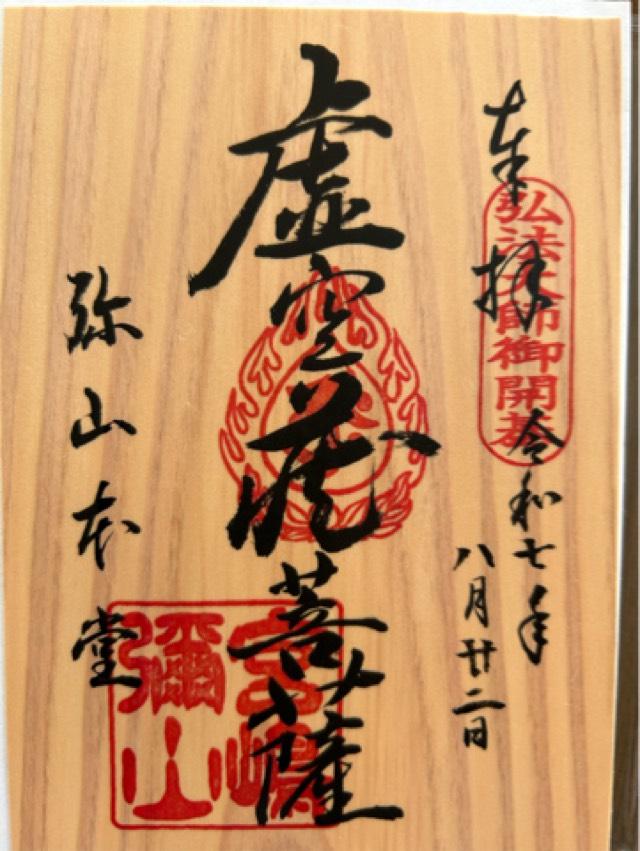 奉拝
弘法大師御開基
令和七年
八月廿二日
虚空蔵菩薩
弥山本堂
宮嶋
彌山